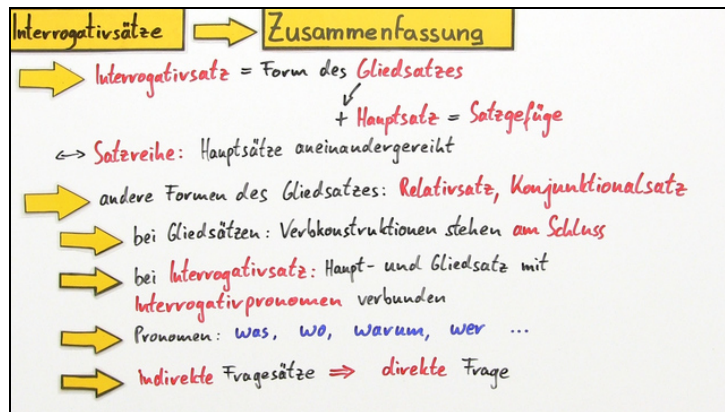 Interrogativsätze Zusammenfassung
Interrogativsatz = Form des Gliedsatzes
+ Hauptsatz = Satzgefüge
↔ Satzreihe: Hauptsätze aneinandergereiht
andere Formen des Gliedsatzes: Relativsatz, Konjunktionalsatz
bei Gliedsätzen: Verbkonstruktionen stehen am Schluss
bei Interrogativsatz: Haupt- und Gliedsatz mit
Interrogativpronomen verbunden
Pronomen: was, wo, warum, wer ...
indirekte Fragesätze ⇒ direkte Frage